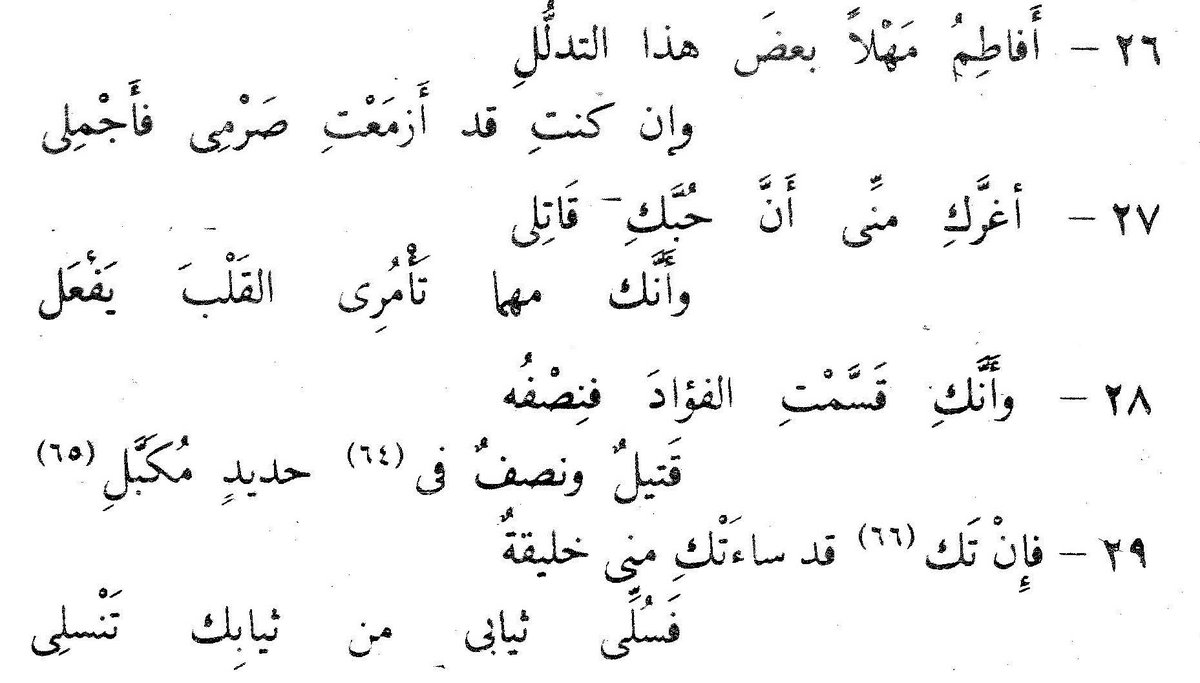 ٢٦ – أَفاطِمُ مَهْلاً بعضَ هذا التدلُّلِ
وإن كنتِ قد أَزمَعْتِ صَرْمِى فأَجْمِلِى
٢٧ – أغرَّكِ منِّى أَنَّ حُبَّكِ قَاتِلِى
وأَنَّك مهما تَأْمُرِى القَلْبَ يَفْعَل
٢٨ – وأَنَّكِ قَسَّمْتِ الفؤادَ فنِصْفُه
قَتيلٌ ونصفٌ فى (٦٤) حديدٍ مُكَبَّلِ (٦٥)
٢٩ – فإِنْ تَك (٦٦) قد ساءَتْكِ منى خليقةٌ
فَسُلِّى ثيابى من ثيابِك تَنْسلِى